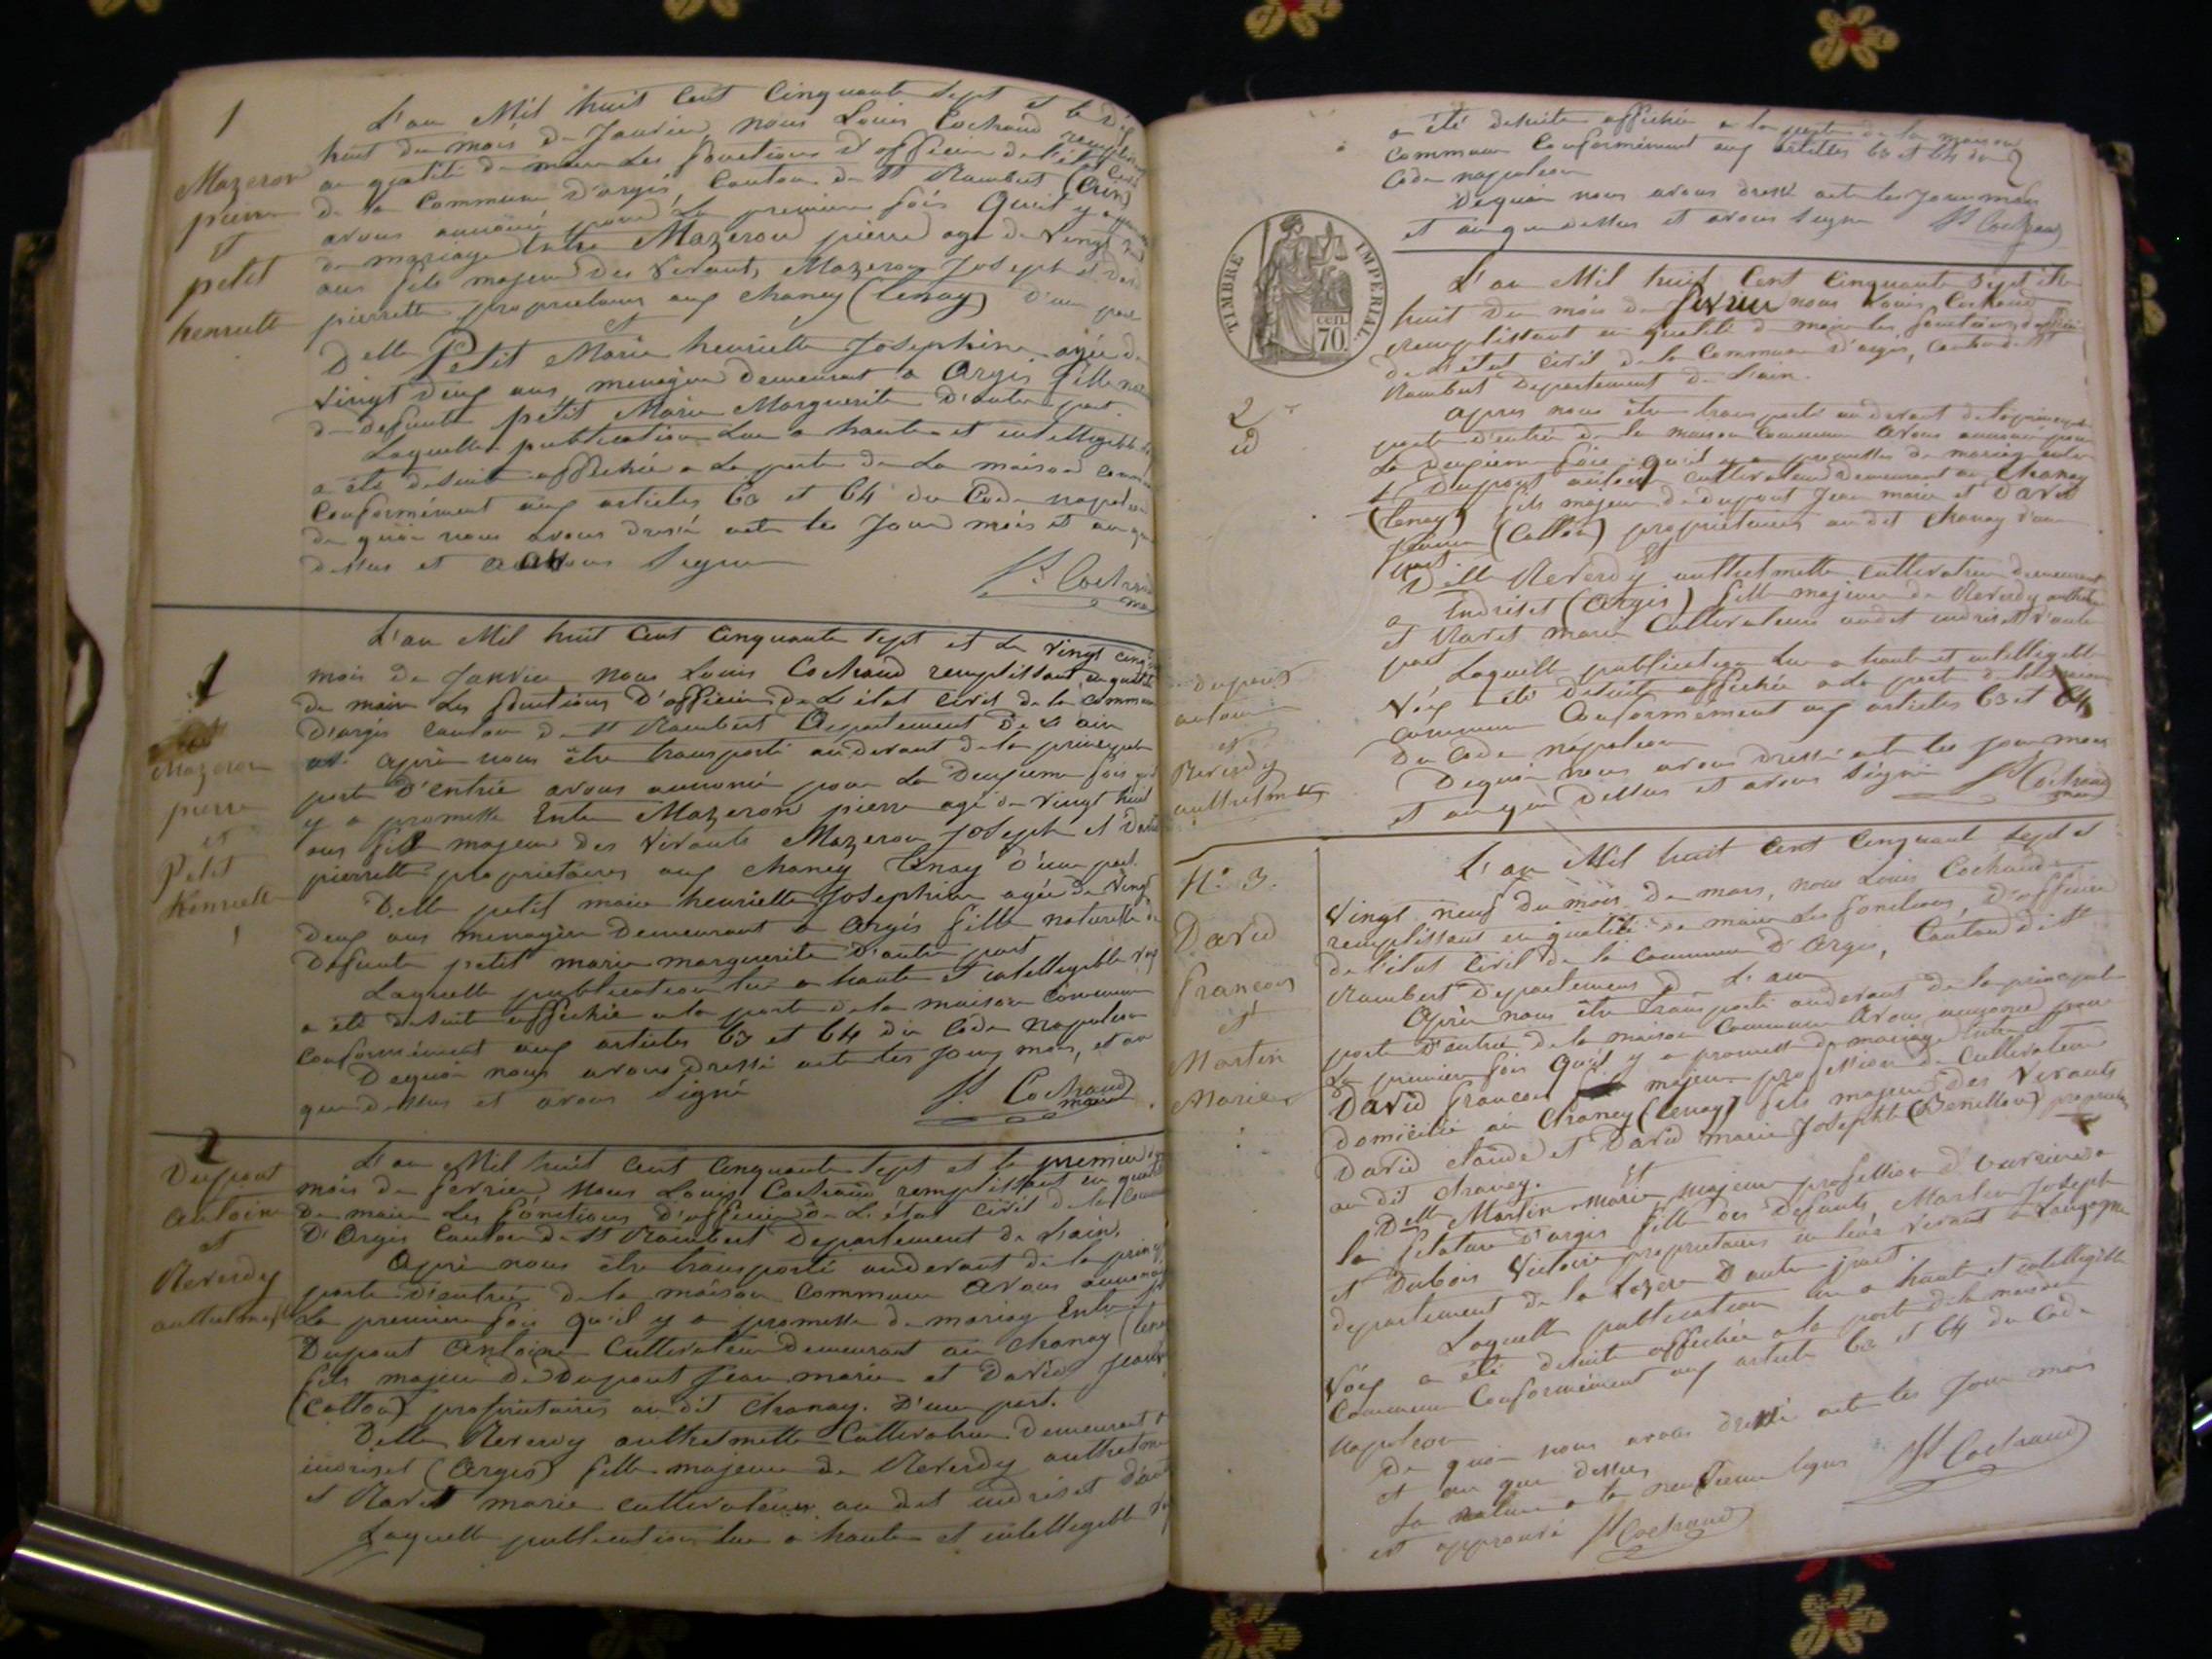 1
Mazeron
pierre
et
petit
henriette
L'an Mil huit Cent Cinquante Sept et le dix
huit du mois de Janvier, nous Louis Cochaud remplissant
en qualité de maire les fonctions d'officier de l'état Civil
de la Commune d'argis, Canton de St Rambert (Ain)
avons annoncé pour la premiere fois Qu'il y a promesse
de mariage Entre Mazeron pierre age de Vingt huit
ans fils majeur des Vivants, Mazeron Joseph et David
pierrette proprietaires aux chaney (tenay) D'une part
et
Delle Petit Marie henriette Josephine agée de
Vingt deux ans menagère demeurant a Argis fille naturelle
de defunte petit Marie Marguerite D'autre part.
Laquelle publication Lue a haute et intelligible
a été desuite affichée a La porte de La maison commune
Conformément aux articles 63 et 64 du Code napoleon
de quoi nous avons dressé acte les Jour mois et an que
dessus et avons Signé
Ls Cochaud
maire
1
Mazeron
pierre
et
Petit
Henriette
L'an Mil huit Cent Cinquante Sept et Le Vingt cinq
mois de Janvier nous Louis Cochaud remplissant en qualité
de maire Les fonctions D'officier de L'état Civil de la Commune
D'argis Canton de St Rambert Departement De L'ain
après nous être transporté audevant de la principale
porte D'entrée avons annoncé pour La Deuxieme fois qu'il
y a promesse Entre Mazeron pierre agé de Vingt huit
ans fils majeur des Vivants Mazeron Joseph et David
pierrette proprietaires aux chaney tenay D'une part.
Delle petit marie henriette Josephine agée de Vingt
Deux ans menagère Demeurant a Argis fille naturelle de
Defunte petit marie marguerite D'autre part
Laquelle publication lue a haute et intelligible Voix
a été desuite affichée a la porte de la maison Commune
Conformément aux articles 63 et 64 du Code Napoleon
Dequoi nous avons Dressé acte les Jour mois, et an
que dessus et avons Signé
Ls Cochaud
maire
2
Dupont
Antoine
et
Reverdy
anthelmette
L'an Mil huit Cent Cinquante Sept et le premier du
mois de fevrier Nous Louis Cochaud remplissant en qualité
De maire Les fonctions D'officier de L'état Civil de la Commune
D'Argis Canton de St Rambert Departement de L'ain.
Après nous être transporté audevant de la principale
porte d'entrée de la maison Commune Avons annoncé
La premiere fois qu'il y a promesse de mariage Entre
Dupont Antoine Cultivateur Demeurant au Chanay (tenay)
fils majeur de Dupont Jean marie et David
(Cottoa) proprietaires au dit Chanay. D'une part.
Delle Reverdy anthelmette Cultivatrice Demeurant a
indriset (Argis) fille majeure de Reverdy anthelme
et Ravet marie cultivateurs au dit indriset D'autre
Laquelle publication lue a haute et intelligible Voix
a été desuite affichée a la porte de la maison
Commune Conformément aux articles 63 et 64 du
Code napoleon
Dequoi nous avons dressé acte les Jour mois
et an que dessus et avons Signé Ls Cochaud
TIMBRE IMPERIAL.
70 cen
2
id
Dupont
antoine
et
Reverdy
anthelmette
L'an Mil huit Cent Cinquante Sept et le
huit du mois de fevrier nous Louis Cochaud
Remplissant en qualité de maire les fonctions d'officier
De L'état Civil de la Commune D'argis, Canton de St
Rambert Departement de L'ain.
Après nous être transporté audevant de la principale
porte d'entrée de la maison Commune Avons annoncé pour
La Deuxieme fois qu'il y a promesse de mariage entre
Dupont antoine cultivateur Demeurant au Chanay
(tenay) fils majeur de Dupont Jean marie et David
(Cottoa) proprietaires au dit Chanay d'une
part et
Delle Reverdy anthelmette cultivatrice demeurant
a indriset (Argis) fille majeure de Reverdy anthelme
et Ravet marie Cultivateurs audit indriset D'autre
part
Laquelle publication Lue a haute et intelligible
Voix a été Desuite affichée a La porte de la maison
commune Conformément aux articles 63 et 64
Du Code napoleon
Dequoi nous avons dressé acte les jour mois
et an que Dessus et avons Signé Ls Cochaud
maire
N° 3.
David
francois
et
Martin
Marie
L'an Mil huit Cent Cinquante Sept et
Vingt neuf du mois de mars, nous Louis Cochaud
remplissant en qualité de maire Les fonctions, D'officier
de l'état Civil de la commune D'Argis, Canton de St
Rambert Departement de L'ain
Après nous être transporté audevant de la principale
porte D'entrée de la maison Commune Avons annoncé pour
La premiere fois Qu'il y a promesse de mariage Entre
David francois majeur profession de Cultivateur
Domicilié au Chaney (tenay) fils majeur des Vivants
David claude et David marie Josephte (Benillon) proprietaires
au dit chaney. Et
Delle Martin Marie, majeure profession d'ouvriere a
la filature D'argis fille des Defunts, Martin Joseph
et Dubois Victoire proprietaires en leur vivant a Langogne
departement de la Lozere D'autre part.
Laquelle publication lue a haute et intelligible
Voix a été desuite affichée a la porte de la maison
Commune Conformément aux article 63 et 64 du Code
Napoleon
De quoi nous avons dressé acte les Jour mois
et an que dessus Ls Cochaud
La rature a la neuvieme ligne
est approuvé Ls Cochaud